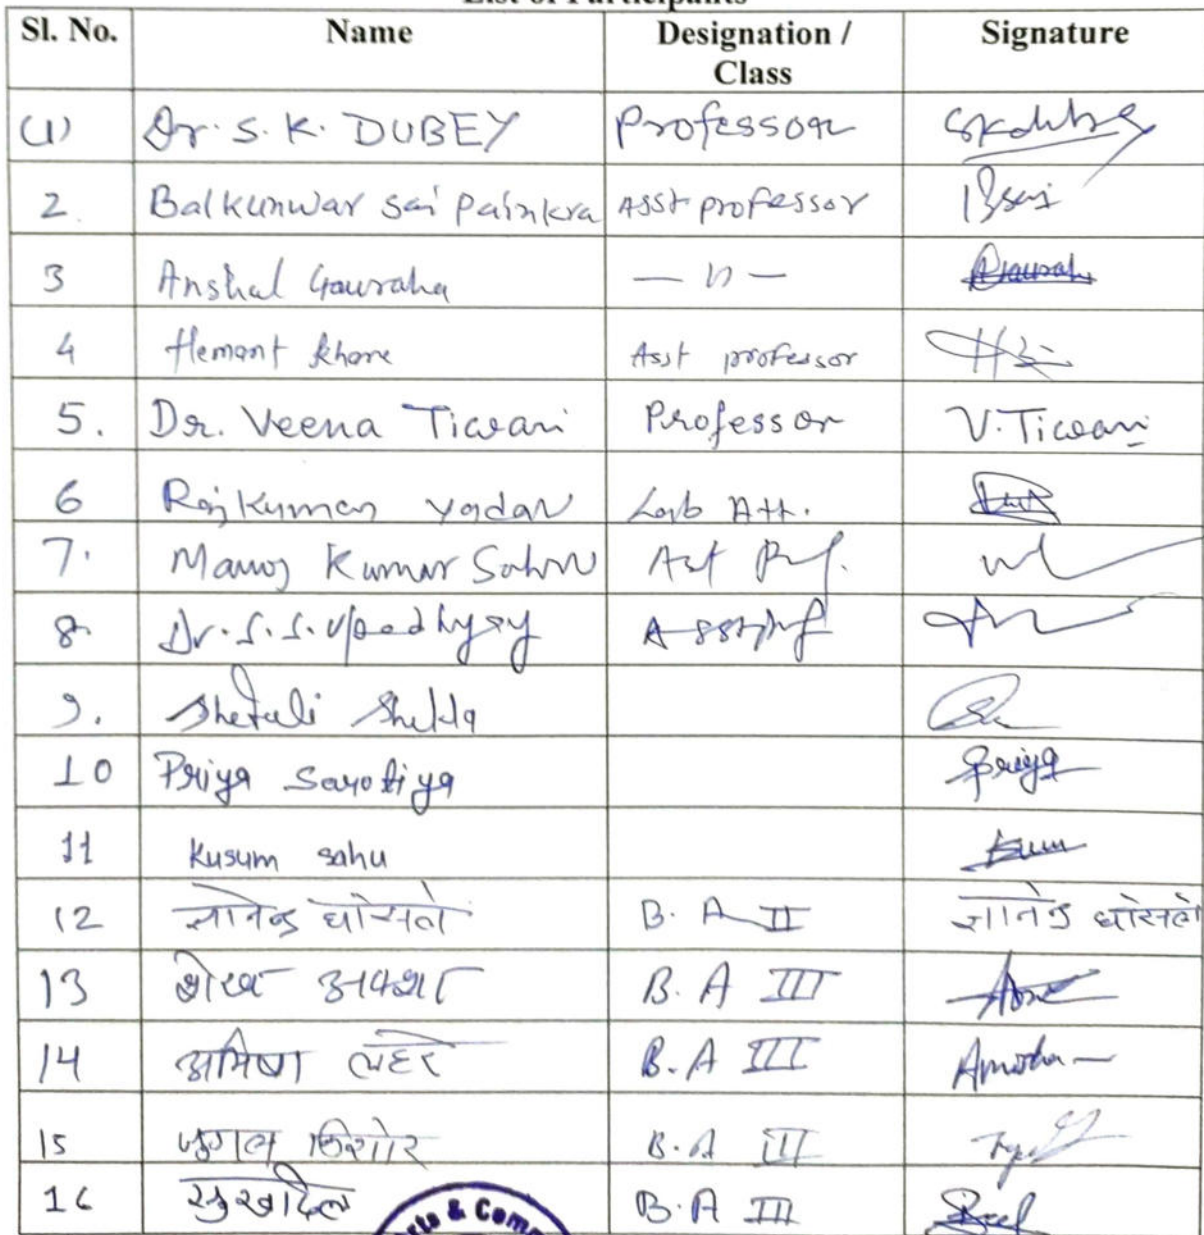 List of Participants
Sl. No. Name Designation / Class Signature
(1) Dr. S. K. DUBEY Professor SKdubey
2. Balkunwar sai Painkra Asst professor Bsai
3 Anshal Gauraha — 〃 — AGaurah
4 Hemant Khare Asst professor
5. Dr. Veena Tiwari Professor V. Tiwari
6 Rajkumar yadav Lab Att.
7. Manoj Kumar Sahu Ast Prof.
8. Dr. S. S. Upadhyay Asstprof
9. Shefali Shukla
10 Priya Sarotiya Priya
11 Kusum sahu
12 ज्ञानेन्द्र घोसले B. A II ज्ञानेन्द्र घोसले
13 शेख अफशा B. A III
14 अमिषा लहरे B. A III Amisha
15 जुगल किशोर B. A III
16 सुखदिल B. A III
Arts & Comm